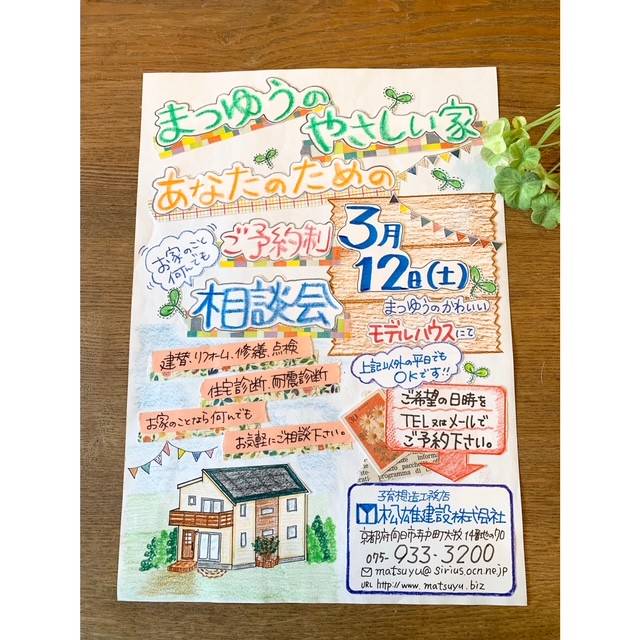 まつゆうの
やさしい家
あなたのための
お家のこと
何んでも
ご予約制
相談会
3月
12日(土)
まつゆうのかわいい
モデルハウスにて
上記以外の平日でも
OKです!!
建替、リフォーム、修繕、点検
住宅診断、耐震診断
お家のことなら何んでも
お気軽にご相談下さい。
ご希望の日時を
TEL又はメールで
ご予約下さい。
松雄建設株式会社
京都府向日市寺戸町大牧14番地の70
075-933-3200
matsuyu@sirius.ocn.ne.jp
URL http://www.matsuyu.biz